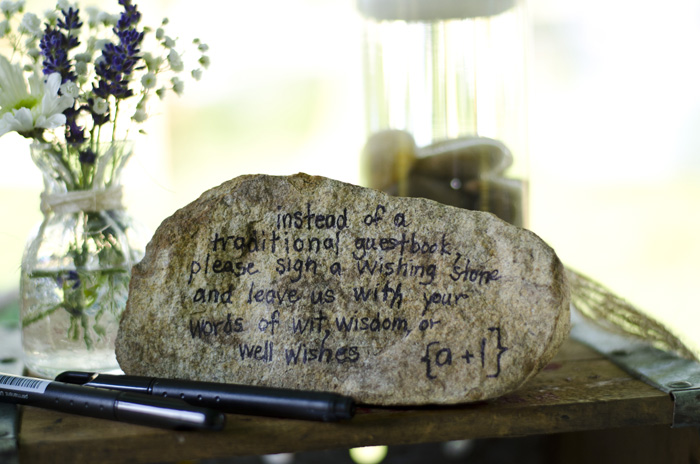 instead of a
traditional guestbook,
please sign a wishing stone
and leave us with your
words of wit, wisdom, or
well wishes {a+l}